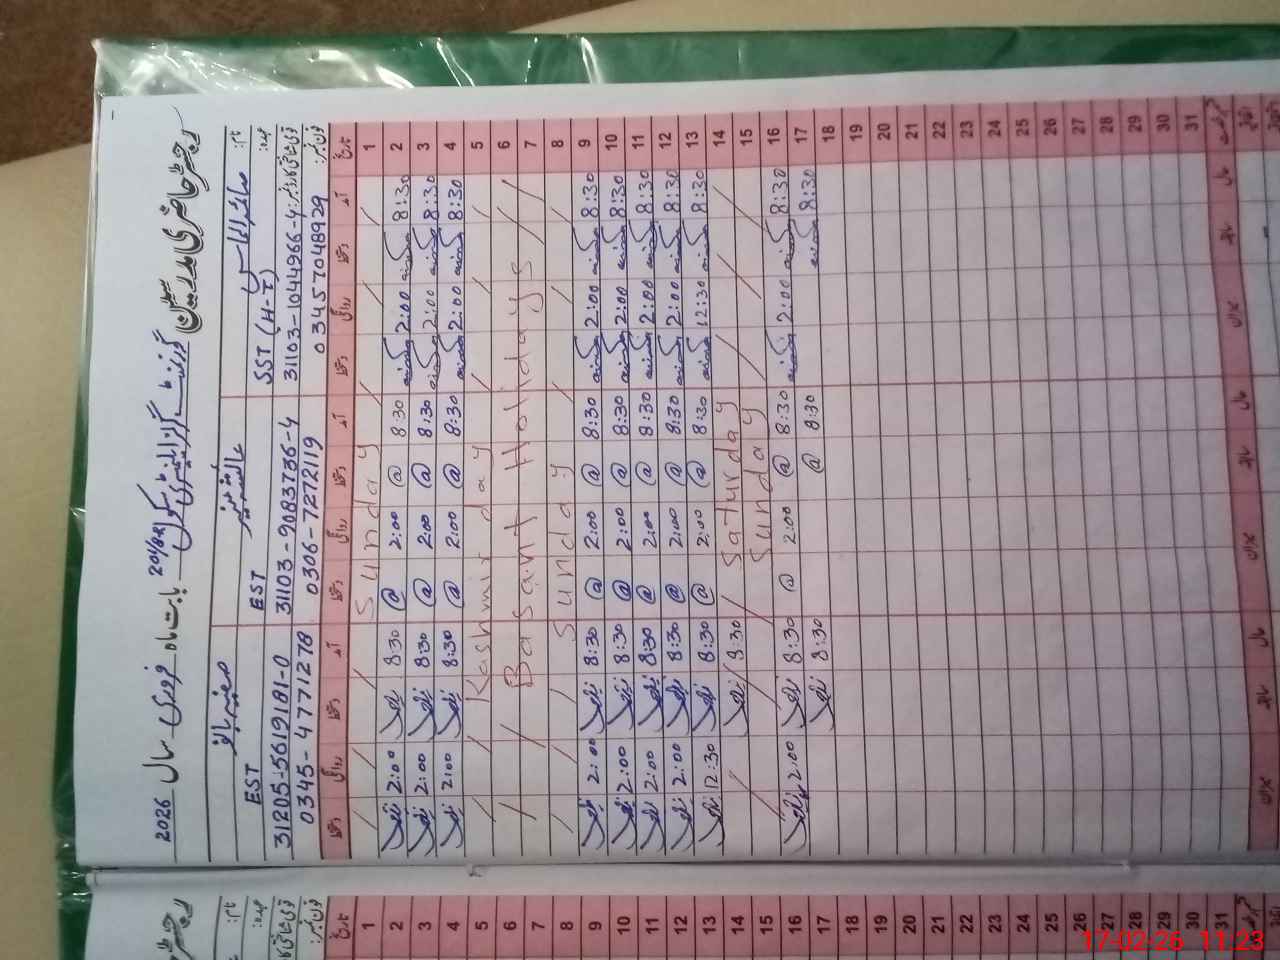 رجسٹر حاضری مدرسین گورنمنٹ گرلز ایلیمنٹری سکول بابت ماہ فروری سال 2026
نام: صائمہ الماس صفیہ بانو
عہدہ: SST (H-T) EST EST
31103-1044966-4 31103-9083736-4 31205-5619181-0
فون نمبر: 03457048929 0306-7272119 0345-4771278
تاریخ آمد دستخط روانگی دستخط آمد دستخط روانگی دستخط آمد دستخط روانگی دستخط
1 Sunday
2 8:30 2:00 8:30 @ 2:00 @ 8:30 2:00
3 8:30 2:00 8:30 @ 2:00 @ 8:30 2:00
4 8:30 2:00 8:30 @ 2:00 @ 8:30 2:00
5 Kashmir day
6 Basant Holidays
7
8 Sunday
9 8:30 2:00 8:30 @ 2:00 @ 8:30 2:00
10 8:30 2:00 8:30 @ 2:00 @ 8:30 2:00
11 8:30 2:00 8:30 @ 2:00 @ 8:30 2:00
12 8:30 2:00 8:30 @ 2:00 @ 8:30 2:00
13 8:30 12:30 8:30 @ 2:00 @ 8:30 12:30
14 Saturday 8:30
15 Sunday
16 8:30 2:00 8:30 @ 2:00 @ 8:30 2:00
17 8:30 8:30 @ 8:30
18
19
20
21
22
23
24
25
26
27
28
29
30
31
نام:
عہدہ:
فون نمبر:
تاریخ
1
2
3
4
5
6
7
8
9
10
11
12
13
14
15
16
17
18
19
20
21
22
23
24
25
26
27
28
29
30
31
17-02-26 11:23